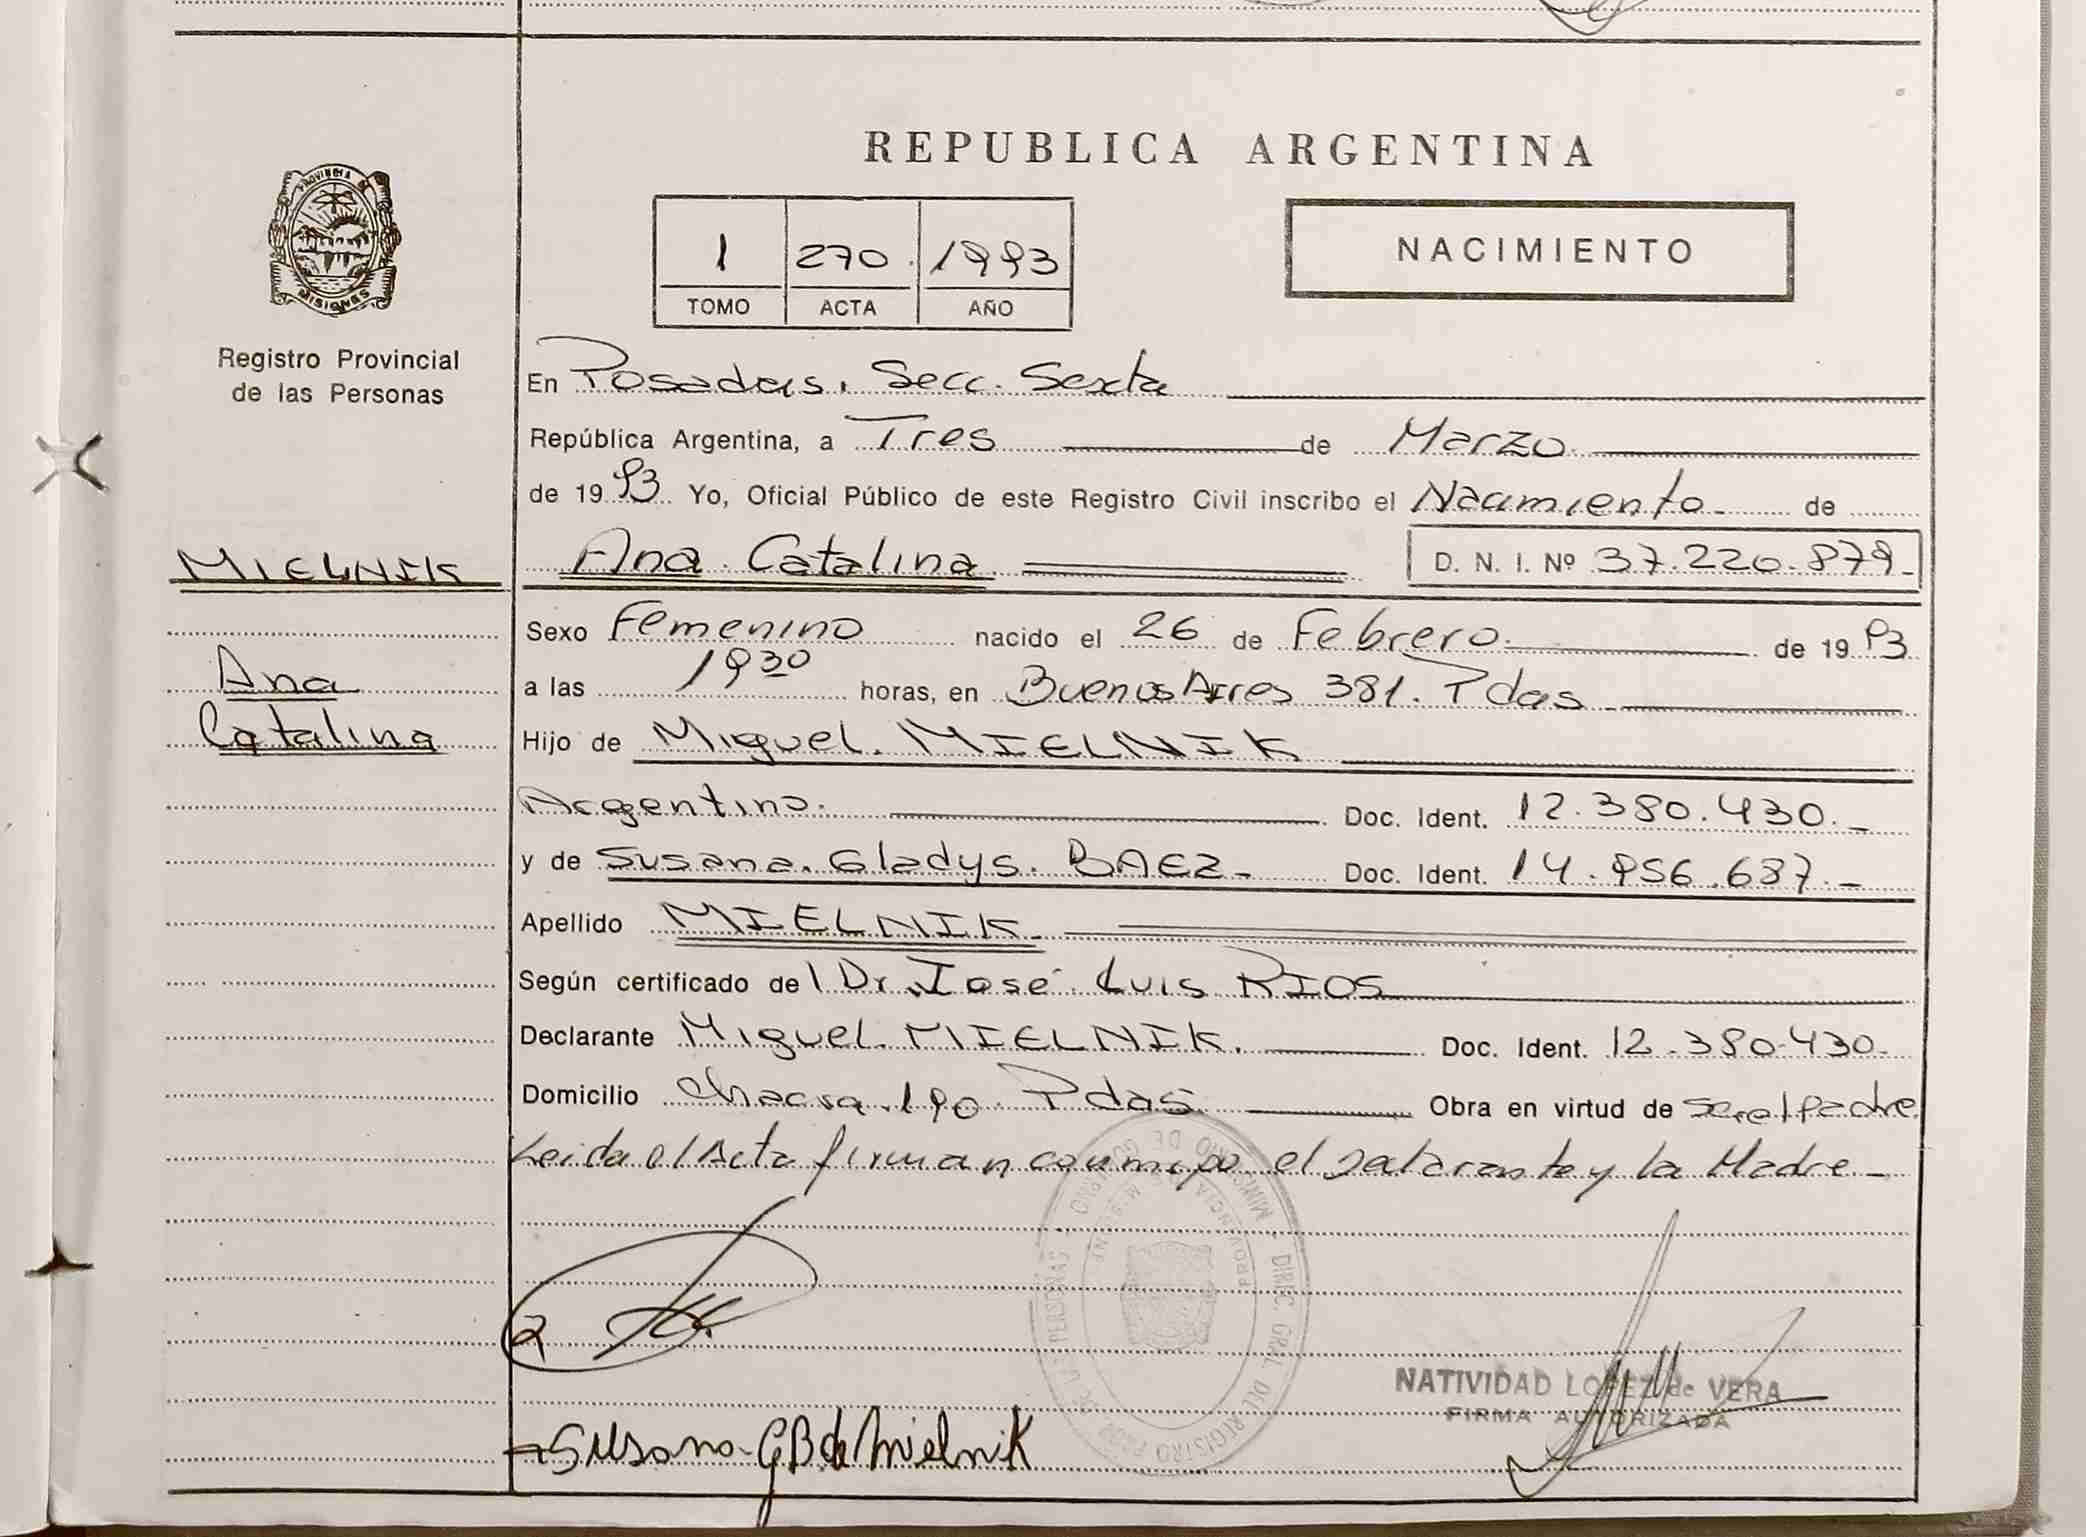 PROVINCIA DE
MISIONES
Registro Provincial
de las Personas
MIELNIK
Ana
Catalina
REPUBLICA ARGENTINA
1 270. 1993
TOMO ACTA AÑO
NACIMIENTO
En Posadas. Secc. Sexta
República Argentina, a Tres de Marzo
de 1993 Yo, Oficial Público de este Registro Civil inscribo el Nacimiento de
Ana Catalina D. N. I. Nº 37.220.879
Sexo Femenino nacido el 26 de Febrero de 1993
a las 1930 horas, en Buenos Aires 381. Pdas
Hijo de Miguel. MIELNIK
Argentino. Doc. Ident. 12.380.430.
y de Susana. Gladys. BAEZ Doc. Ident. 14.956.687.
Apellido MIELNIK
Según certificado del Dr. José Luis RIOS
Declarante Miguel. MIELNIK. Doc. Ident. 12.380.430
Domicilio Chacra 190. Pdas Obra en virtud de ser el padre
Leida el Acta firman conmigo el declarante y la Madre
MINISTERIO DE GOBIERNO - DIREC. GRAL. DEL REGISTRO PROV. DE LAS PERSONAS
PROVINCIA DE MISIONES
NATIVIDAD LOPEZ de VERA
FIRMA AUTORIZADA
Susana G B de Mielnik